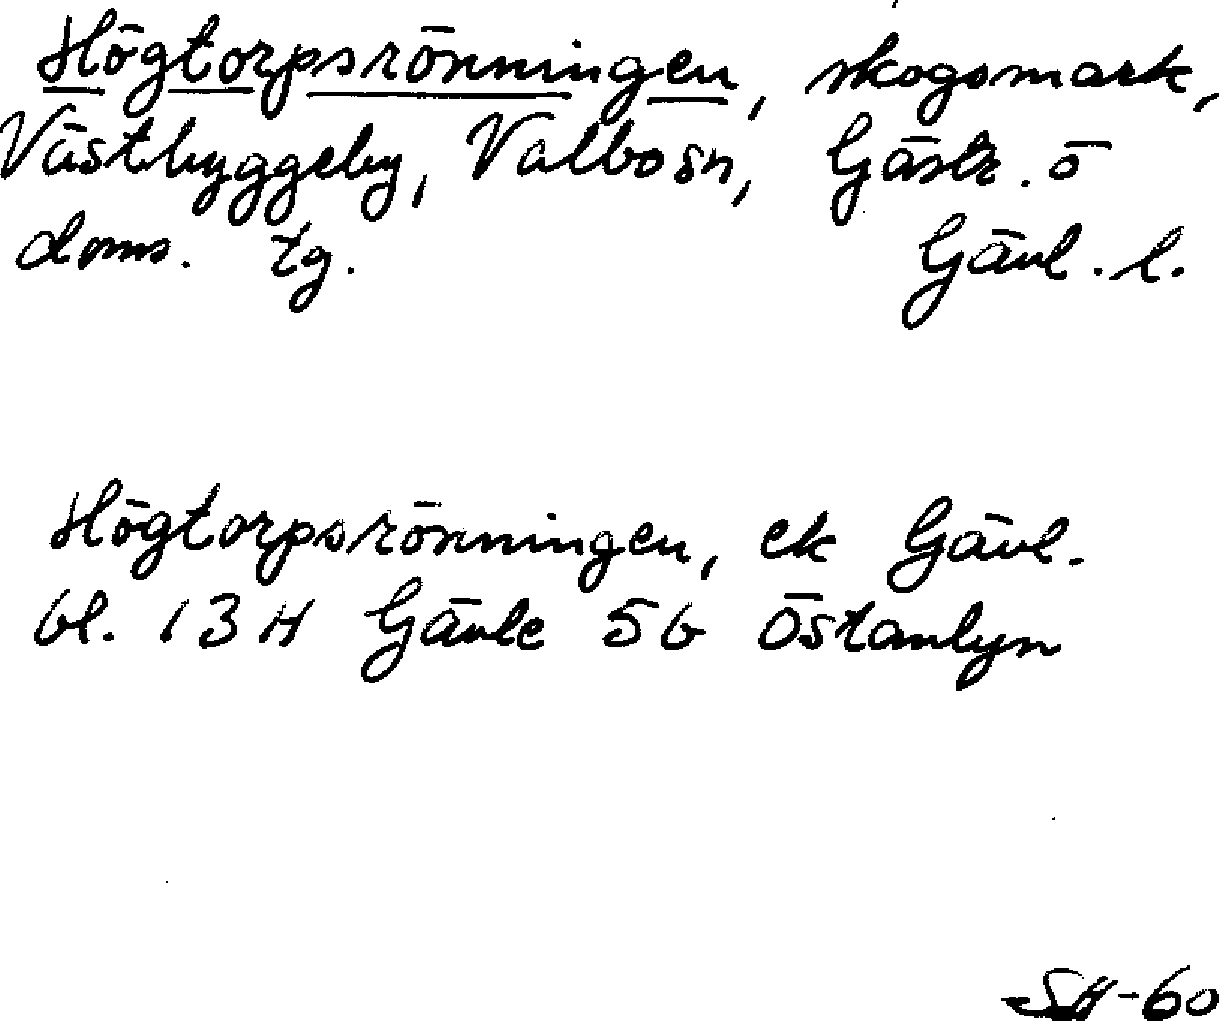 Högtorpsrönningen, skogsmark,
Västbyggeby, Valbo sn, Gästr. ö
doms. tg. Gävl. l.
Högtorpsrönningen, ek Gävl.
bl. 13 H Gävle 5b Östanbyn
SH-60